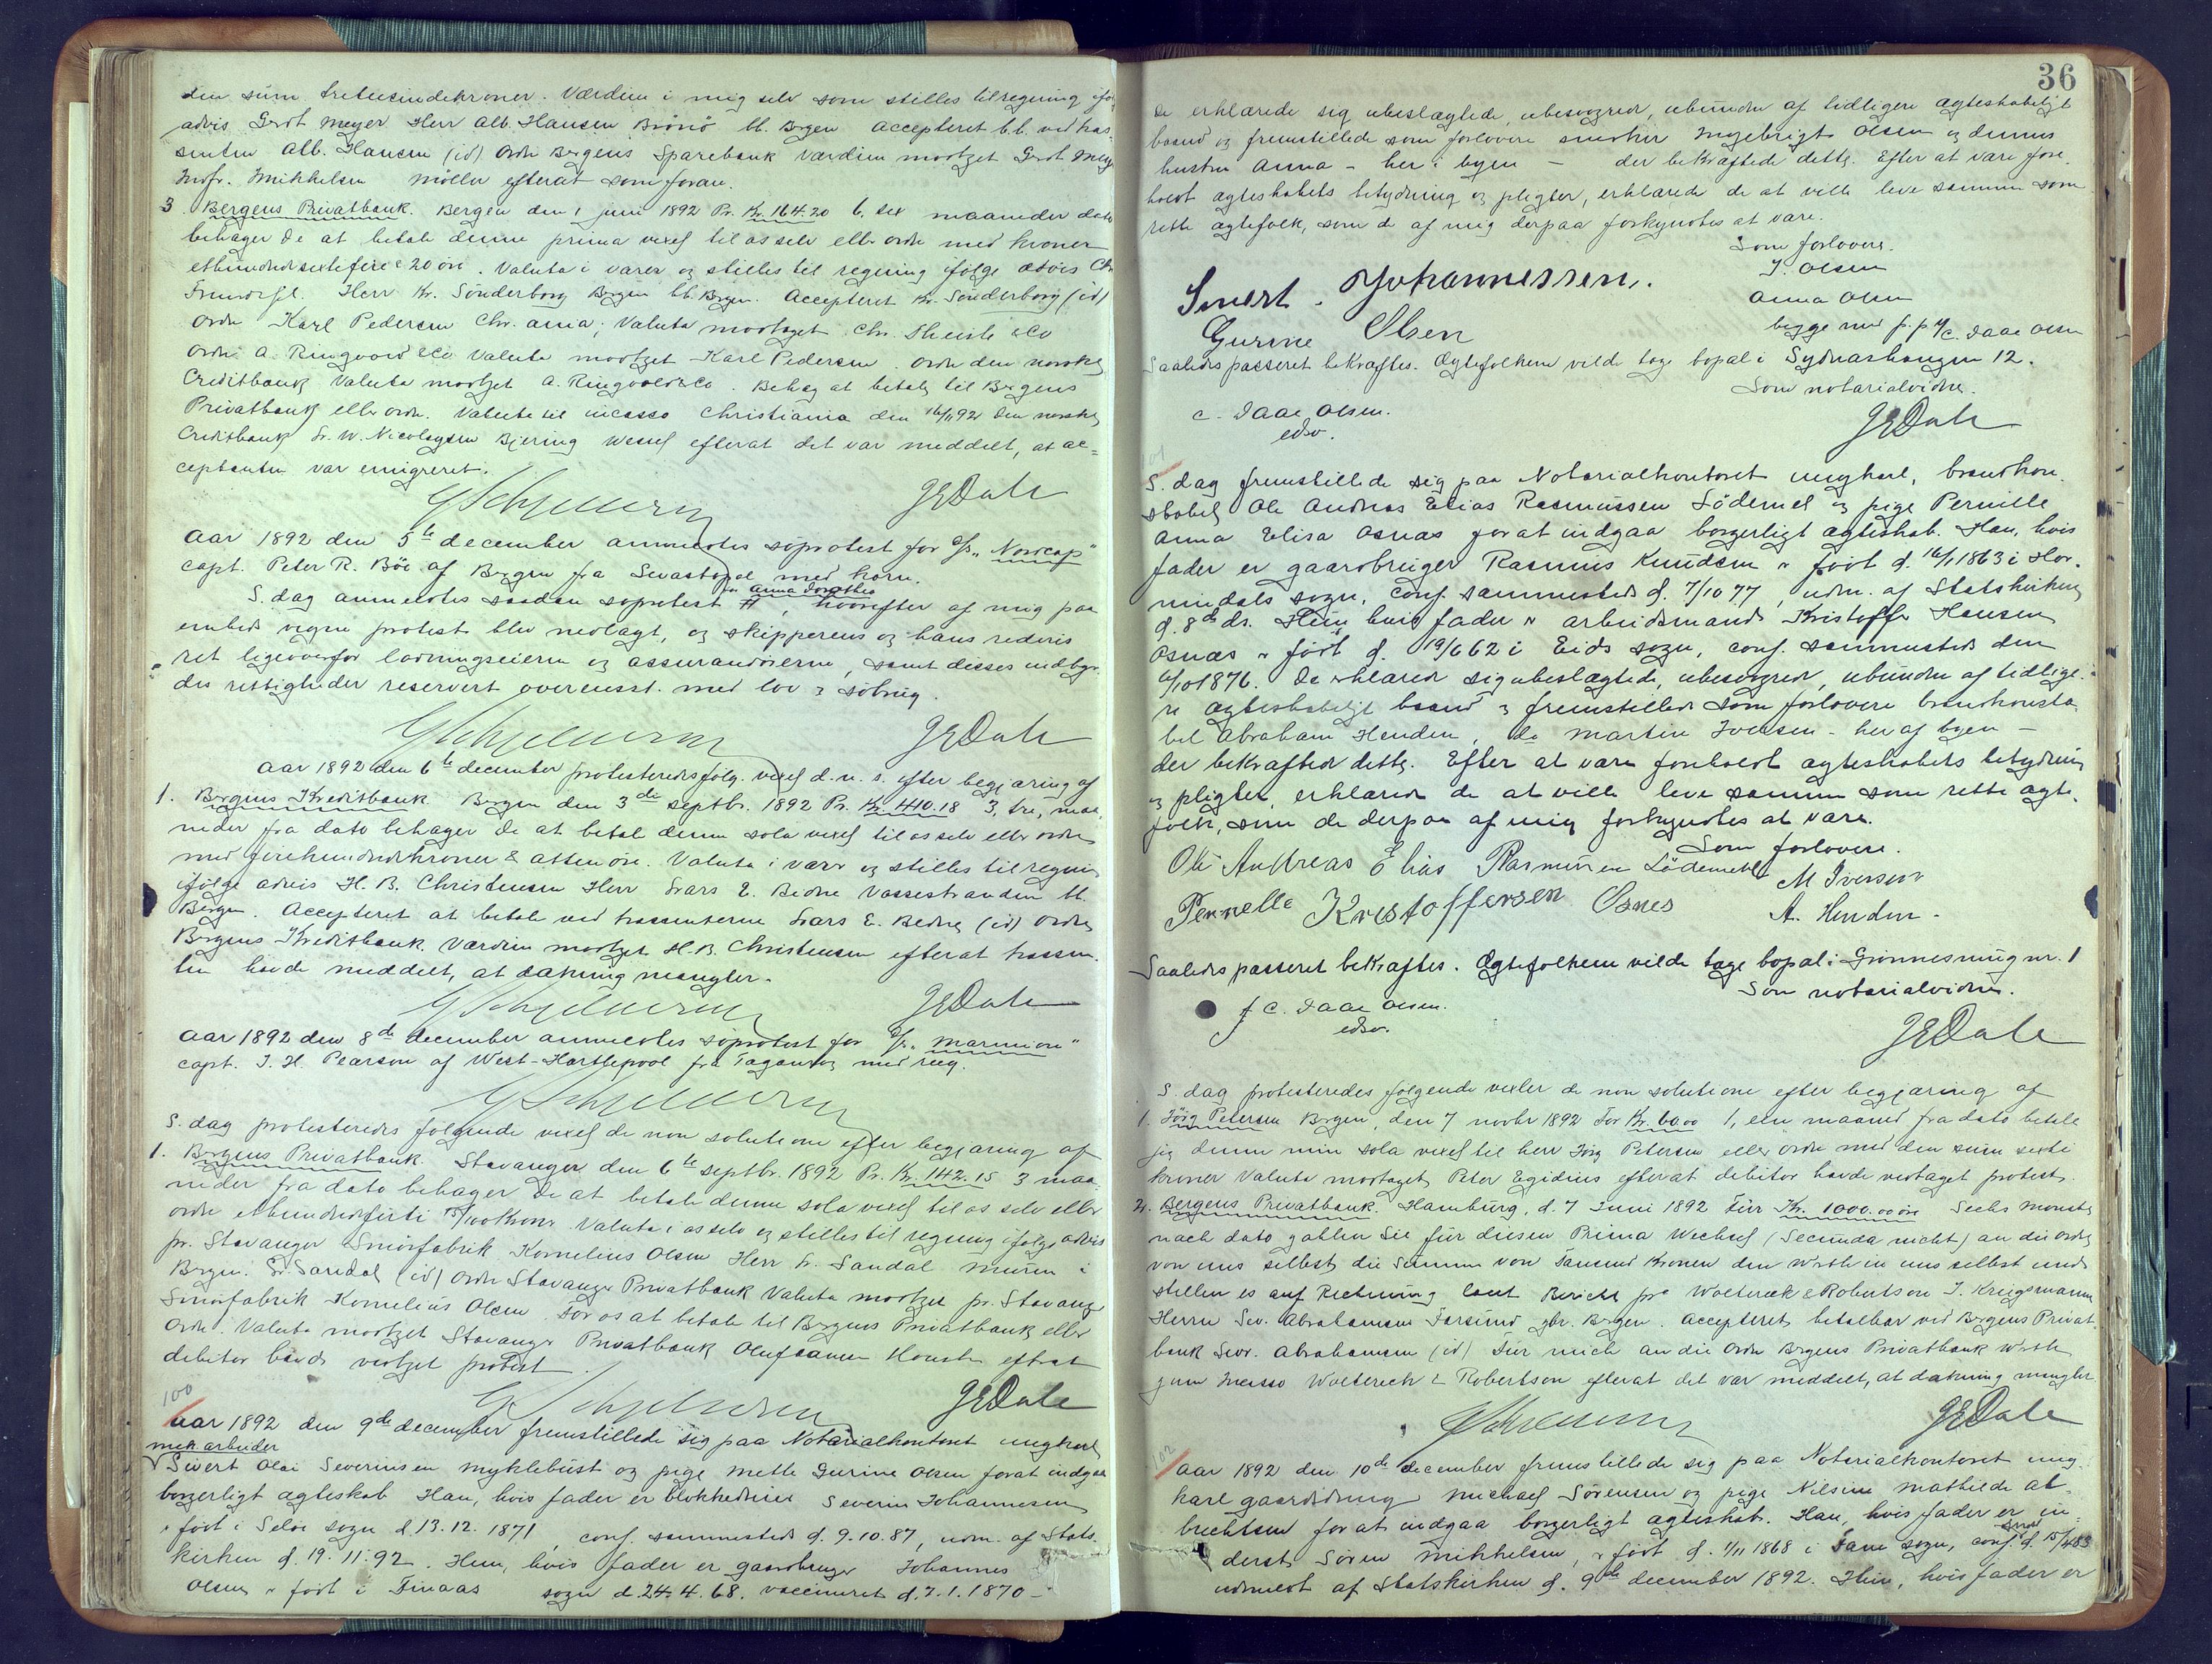 den sum tretusindekroner. Værdien i mig selv som stilles til regning ifø
advis Gerdt Meyer Herr Alb. Hansen Brönö bl. Bergen Accepteret b.b. ved tras-
senten Alb. Hansen (id) Ordre Bergens Sparebank Værdien modtaget Gerdt Meyer
Indf. Mikkelsen Möller efterat som foran.
3. Bergens Privatbank. Bergen den 1 juni 1892 Pr. Kr. 164.20 6, sex maaneder dato
behager De at betale denne prima vexel til os selv eller ordre med kroner
ethundredesextifire & 20 öre. Valuta i varer og stilles til regning ifölge advis Chr.
Herr Kr. Sönderborg Bergen bl. Bergen. Accepteret Kr. Sönderborg (id)
Ordre Karl Pedersen Chr.ania; Valuta modtaget Chr. & Co
Ordre A. Ringvold & Co Valuta modtaget Karl Pedersen. Ordre den norske
Creditbank Valuta modtaget A. Ringvold & Co. Behag at betale til Bergens
Privatbank eller ordre. Valuta til incasso Christiania den 16/11 92 Den norske
Creditbank Fr. W. Nicolaysen Bjering Wessel efterat det var meddelt, at ac-
ceptanten var emigreret.
GEDahl
Aar 1892 den 5te december anmeldtes söprotest for S/S "Nordcap"
capt. Peter R. Böe af Bergen fra Sevastopol med korn.
for Anna Dorothea
S. dag anmeldtes saadan söprotest #, hvorefter af mig paa
embeds vegne protest blev nedlagt, og skipperens og hans rederis
ret ligeoverfor ladningseierne og assurandörerne, samt disses indbyr-
des rettigheder reservert overensst. med lov & söbrug.
GEDahl
Aar 1892 den 6te december protesteredes fölg. vexel d.n.s. efter begjæring af
1. Bergens Kreditbank Bergen den 3de septbr. 1892 Pr. Kr. 410.18 3, tre, maa-
neder fra dato behager De at betale denne sola vexel til os selv eller ordre
med firehundredekroner & atten öre. Valuta i varer og stilles til regning
ifölge advis H. B. Christensen Herr Lars E. Bedne Vossestranden bl.
Bergen. Accepteret at betale ved trassenterne Lars E. Bedne (id) Ordre
Bergens Kreditbank Værdien modtaget H. B. Christensen efterat trassen-
ten havde meddelt, at dækning mangler.
GEDahl
Aar 1892 den 8de december anmeldtes söprotest for S/S "Marmion"
capt. J. H. Pearson af West-Hartlepool fra Taganrog med rug.
S. dag protesteredes fölgende vexel de non solutione efter begjæring af
1. Bergens Privatbank. Stavanger den 6te septbr. 1892 Pr. Kr. 142.15 3 maa-
neder fra dato behager De at betale denne sola vexel til os selv eller
ordre ethundredefirti 15/100 Kroner. Valuta i os selv og stilles til regning ifölge advis
pr. Stavanger Smörfabrik Kornelius Olsen Herr S. Sandal Muren i
Bergen. S. Sandal (id) Ordre Stavanger Privatbank Valuta modtaget pr. Stavanger
Smörfabrik Kornelius Olsen. For os at betale til Bergens Privatbank eller
Ordre. Valuta modtaget Stavanger Privatbank efterat
debitor havde vedtaget protest.
GEDahl
100
Aar 1892 den 9de december fremstillede sig paa Notarialkontoret ungkarl
mek. arbeider
Sivert Olai Severinsen Myklebust og pige Mette Gurine Olsen forat indgaa
borgerligt ægteskab. Han, hvis fader er blokkedreier Severin Johannesen
er födt i Selöe sogn d. 13.12.1871, conf. sammesteds d. 9.10.87, udm. af Stats-
kirken d. 19.11.92. Hun, hvis fader er gaardbruger Johannes
Olsen er födt i Finaas sogn d. 24.4.68. vaccineret d. 7.1.1870 -
36
De erklærede sig ubeslægtede, ubesvogrede, ubundne af tidligere ægteskabeligt
baand og fremstillede som forlovere snedker Ingebrigt Olsen og dennes
hustru Anna - her i byen - der bekræftede dette. Efter at være fore-
holdt ægteskabets betydning og pligter, erklærede de at ville leve sammen som
rette ægtefolk, som de af mig derpaa forkyndtes at være.
Som forlovere.
I. Olsen
Anna Olsen
begge med p.p. v/ C. Daae Olsen
Sivert. Johannessen.
Gurine Olsen
Saaledes passeret bekræftes. Ægtefolkene vilde tage bopal i Sydnæshaugen 12.
Som notarialvidne.
C. Daae Olsen.
edsv.
GEDahl
101
S. dag fremstillede sig paa Notarialkontoret ungkarl, brandkon-
stabel Ole Andreas Elias Rasmussen Lödemel og pige Pernille
Anna Elisa Osnæs forat indgaa borgerligt ægteskab. Han, hvis
fader er gaardbruger Rasmus Knudsen er födt d. 16/1 1863 i Hor-
nindals sogn, conf. sammesteds d. 7/10 77, udm. af Statskirken
d. 8de ds. Hun hvis fader er arbeidsmand Kristoffer Hansen
Osnæs er födt d. 19/6 62 i Eids sogn, conf. sammesteds den
/10 1876. De erklærede sig ubeslægtede, ubesvogrede, ubundne af tidlige-
re ægteskabeligt baand & fremstillede som forlovere brandkonsta-
bel Abraham Henden, do Martin Iversen - her af byen -
der bekræftede dette. Efter at være foreholdt ægteskabets betydning
og pligter, erklærede de at ville leve sammen som rette ægte-
folk, som de derpaa af mig forkyndtes at være.
Som forlovere.
Ole Andreas Elias Rasmussen Lödemel
M Iversen
Pernelle Kristoffersen Osnes
A. Henden.
Saaledes passeret bekræftes. Ægtefolkene vilde tage bopal i Grönnesmug nr. 1
Som notarialvidne.
C. Daae Olsen.
edsv.
GEDahl
S. dag protesteredes fölgende vexler de non solutione efter begjæring af
1. Jörg Petersen Bergen, den 7 novbr 1892 For Kr. 60.00 1, en maaned fra dato betaler
jeg denne min sola vexel til herr Jörg Petersen eller ordre med den sum sexti
kroner Valuta modtaget Peter Egidius efterat debitor havde vedtaget protest.
2. Bergens Privatbank. Hamburg, d. 7 Juni 1892 Für Kr. 1000.00 öre Sechs Monate
nach dato zahlen Sie für diesen Prima Wechsel (Secunda nicht) an die ordre
von uns selbst die Summe von Tausend Kronen den Werth in uns selbst und
stellen es auf Rechnung laut Bericht pro Woltereck & Robertson J. Kriegsmann
Herrn Sev. Abrahamsen Farsund zbr. Bergen. Accepteret betalbar ved Bergens Privat-
bank Sevr. Abrahamsen (id) Für mich an die Ordre Bergens Privatbank Werth
zum Incasso Woltereck & Robertson efterat det var meddelt, at dækning mangler
GEDahl
102
Aar 1892 den 10de december fremstillede sig paa Notarialkontoret ung-
karl gaarddreng Michael Sörensen og pige Nilsine Mathilde Al-
brechtsen forat indgaa borgerligt ægteskab. Han, hvis fader er in-
derst Sören Mikkelsen, er födt d. 1/11 1868 i Fane sogn, conf. smst d. 15/4 83
udmeldt af Statskirken d. 9de december 1892. Hun, hvis fader er